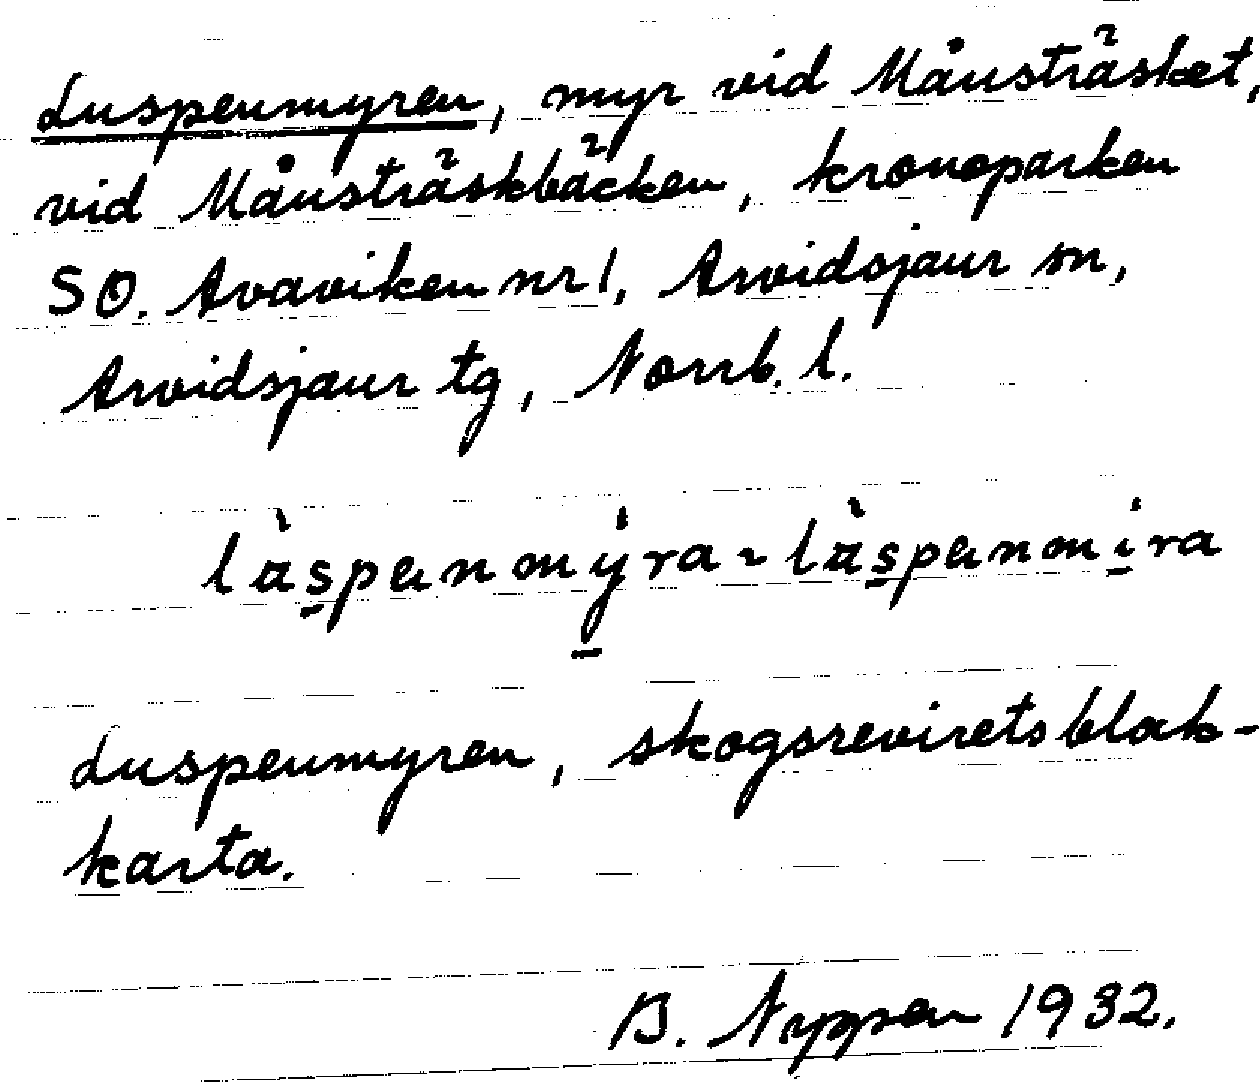 Luspenmyren, myr vid Månsträsket,
vid Månsträskbäcken, kronoparken
SO. Avaviken nr 1, Arvidsjaur sn,
Arvidsjaur tg, Norrb. l.
Luspenmyren, skogsrevirets blak-
karta.
B. Nyppen 1932.